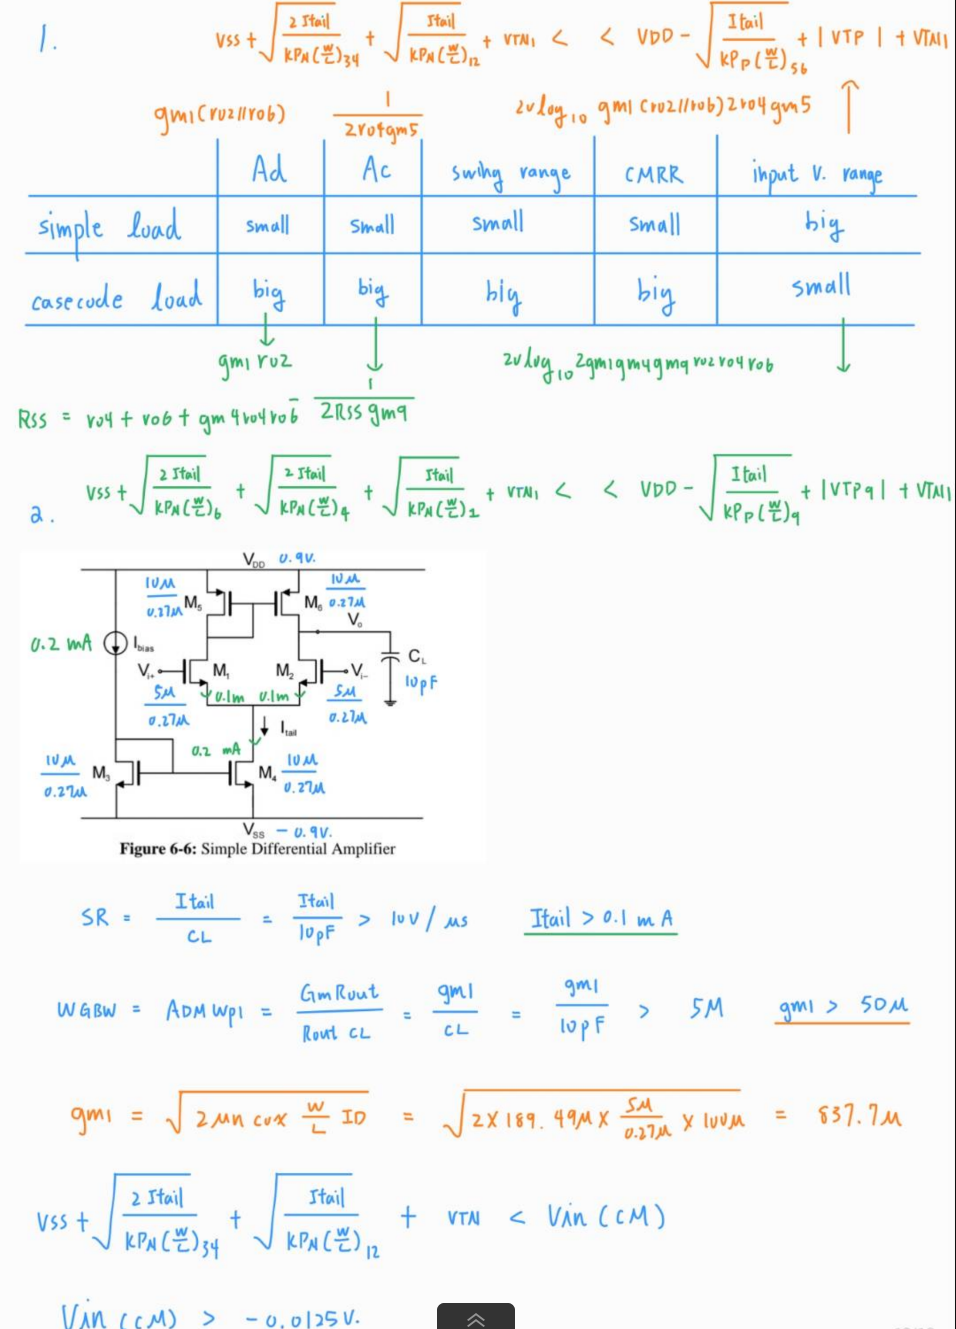 1.
VSS + √(2 Itail / KPN(W/L)34) + √(Itail / KPN(W/L)12) + VTN1 < < VDD - √(Itail / KPP(W/L)56) + |VTP| + VTN1
gm1(ro2//ro6) 1 / 2ro4gm5 20log10 gm1(ro2//ro6)2ro4gm5
Ad Ac swing range CMRR input V. range
simple load small small small small big
casecode load big big big big small
gm1ro2 20log10 2gm1gm4gm9ro2ro4ro6
RSS = ro4 + ro6 + gm4ro4ro6 1 / 2RSSgm9
2.
VSS + √(2 Itail / KPN(W/L)6) + √(2 Itail / KPN(W/L)4) + √(Itail / KPN(W/L)2) + VTN1 < < VDD - √(Itail / KPP(W/L)9) + |VTP9| + VTN1
VDD 0.9V.
10μ / 0.27μ M5 M6 10μ / 0.27μ
Vo
0.2 mA Ibias
Vi+ M1 M2 Vi- CL
5μ / 0.27μ 0.1m 0.1m 5μ / 0.27μ 10pF
Itail
0.2 mA
10μ / 0.27μ M3 M4 10μ / 0.27μ
VSS - 0.9V.
Figure 6-6: Simple Differential Amplifier
SR = Itail / CL = Itail / 10pF > 10V/μs Itail > 0.1 mA
WGBW = ADM Wp1 = GmRout / Rout CL = gm1 / CL = gm1 / 10pF > 5M gm1 > 50μ
gm1 = √(2 μn cox W/L ID) = √(2 × 189.49μ × 5μ/0.27μ × 100μ) = 837.7μ
VSS + √(2 Itail / KPN(W/L)34) + √(Itail / KPN(W/L)12) + VTN < Vin(CM)
Vin(CM) > -0.0125V.